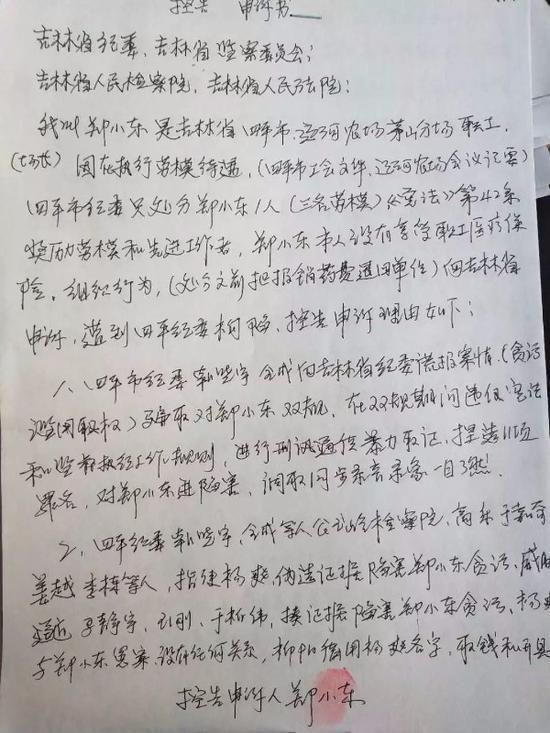 控告 申诉书
吉林省纪委、吉林省监察委员会；
吉林省人民检察院，吉林省人民法院：
我叫郑小东是吉林省四平市，辽河农场第四分场职工，
（场长）因在执行劳模待遇，（四平市工会文件，辽河农场会议记要）
四平市纪委只处分郑小东1人（三名劳模）《宪法》第42条
奖历劳模和先进工作者，郑小东本人没有享受职工医疗保
险，组织行为，（处分文前把报销药费退回单位）向吉林省
申诉，遭到四平纪委构陷、控告申诉理由如下：
1、四平市纪委 向吉林省纪委谎报案情，（贪污
滥用职权）争取对郑小东双规，在双规期间违反宪法
和监察执纪工作规则，进行刑讯逼供暴力取证，捏造 项
罪名，对郑小东进陷害，调取同步录音录象一目了然．
2、四平纪委 等人 检察院，
姜越 李栋等人，指使杨爽，伪造证据陷害郑小东贪污，威胁
于静宇， 刚，于 伟，揍证据陷害郑小东贪污，杨爽
与郑小东男案，没有任何关系， 借用杨爽名字，取钱和开具
控告申诉人郑小东